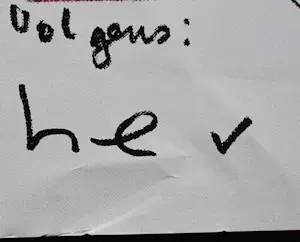 Volgens:
he ✓